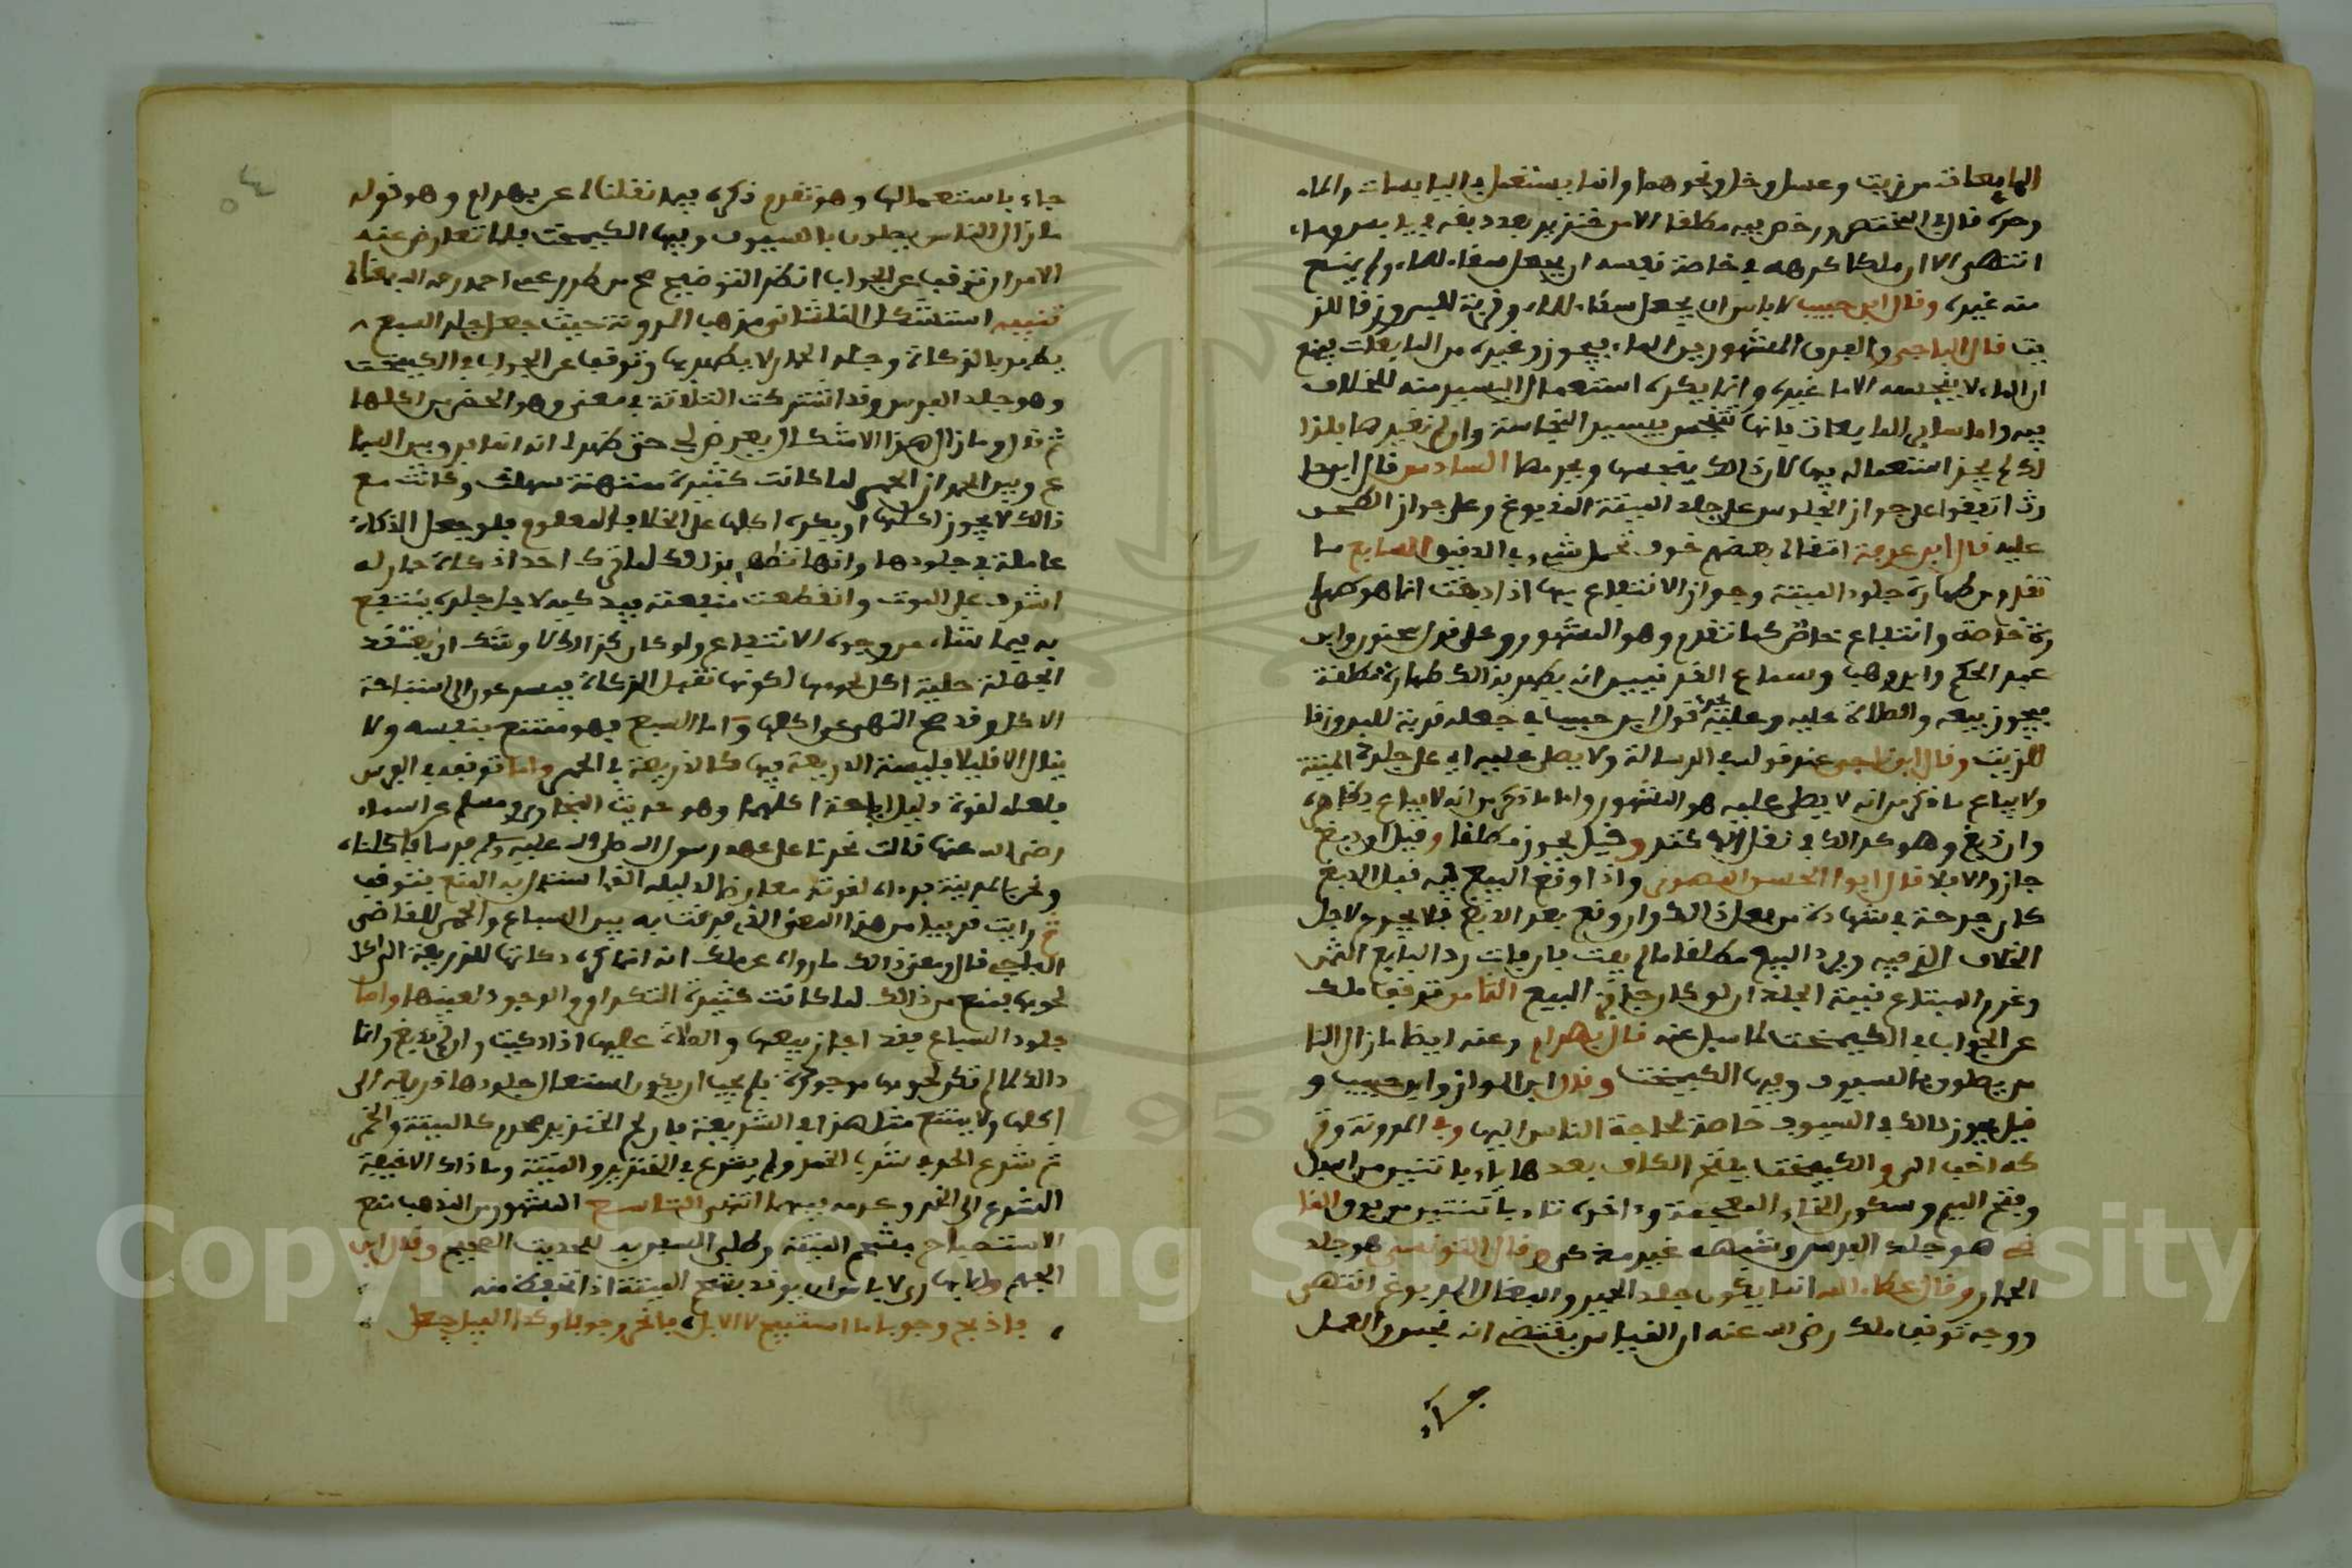 المايعات من زيت وعسل وخل ونحوهما وانما يستعمل في اليابسات والماء
وحده قال في المختصر ورخص فيه مطلقا الا من خنزير بعد دبغه في يابس وماء
انتهى الا ان ملكا كرهه في خاصة نفسه ان يجعل سقاء للماء ولم يمنع
منه غيره وقال ابن حبيب لا باس ان يجعل سقاء للماء وقربة للبن وزقا للز
يت قال الباجي والفرق المشهور بين الماء فيجوز وغيره من المايعات يمنع
ان الماء لا ينجسه الا ما غيره وانما يكره استعمال اليسير منه للخلاف
فيه واما سائر المايعات فانها تنجس بيسير النجاسة وان لم تغيرها فلذا
لك لم يجز استعماله فيها لان ذالك ينجسها ويحرمها السادس قال ابن حا
رث اتفقوا على جواز الجلوس على جلد الميتة المدبوغ وعلى جواز الطحن
عليه قال ابن عرفة اتقاء بعضهم خوف تحلل شيء في الدقيق السابع ما
تقدم من طهارة جلود الميتة وجواز الانتفاع بها اذا دبغت انما هو طها
رة خاصة وانتفاع خاص كما تقدم وهو المشهور وعلى قول سحنون وابن
عبد الحكم وابن وهب وسماع القرينين انه يطهر بذالك طهارة مطلقة
فيجوز بيعه والصلاة عليه وعليه يجري قول ابن حبيب في جعله قربة للبن وزقا
للزيت وقال ابن ناجي عند قوله في الرسالة ولا يصلى عليه اي على جلد الميتة
ولا يباع ما ذكر من انه لا يصلى عليه هو المشهور واما ما ذكر من انه لا يباع فظاهره
وان دبغ وهو كذالك في نقل الاكثر وقيل يجوز مطلقا وقيل ان دبغ
جاز والا فلا قال ابو الحسن واذا وقع البيع فيه قبل الدبغ
كان جرحة في شهادة من فعل ذالك وان وقع بعد الدبغ فلا يجرح لاجل
الخلاف الذي فيه ويرد البيع مطلقا ما لم يفت فان فات رد البايع الثمن
وغرم المبتاع قيمة الجلد ان لو كان جايز البيع الثامن توقف ملك
عن الجواب في الكيمخت لما سيل عنه قال بهرام وعنه ايضا ما زال النا
س يصلون بالسيوف وفيها الكيمخت وقال ابن المواز وابن حبيب و
قيل يجوز ذالك في السيوف خاصة لحاجة الناس اليها وفي المدونة وتر
كه احب الي والكيمخت بفتح الكاف بعدها ياء باثنتين من اسفل
وفتح الميم وسكون الخاء المعجمة وءاخره تاء باثنتين من فوق القا
ضي هو جلد الفرس وشبهه غير مذكى وقال التونسي هو جلد
الحمار وقال عطاء الله انما يكون جلد الحمير والبغال المدبوغ انتهى
ووجه توقف ملك رضي الله عنه ان القياس يقتضي انه نجس والعمل
جاء
جاء باستعمالها وهو تقدم ذكره فيما نقلناه عن بهرام وهو قوله
ما زال الناس يصلون بالسيوف وفيها الكيمخت فلما تعارض عنه
الامران توقف عن الجواب انظر التوضيح صح من طرر عمي احمد رحمه الله تعالى
تنبيه استشكل القلشاني مذهب المدونة حيث جعل جلد السبع
يطهر بالزكاة وجلد الحمار لا يطهر بها وتوقف عن الجواب في الكيمخت
وهو جلد الفرس وقد اشتركت الثلاثة في معنى وهو الحضر من اكلها
ثم قال وما زال هذا الاشكال يعرض لي حتى ظهر لي انه انما فرق بين السبا
ع وبين الحمر ان الحمر لما كانت كثيرة ممتهنة سهلت وكانت مع
ذالك لا يجوز اكلها او يكره اكلها على الخلاف المعلوم فلو جعل الذكاة
عاملة في جلودها وانها تطهر بذالك لما ترك احد اذ كاة حمار له
اشرف على الموت وانقطعت منفعته فيذكيه لاجل جلده ينتفع
به فيما شاء من وجوه الانتفاع ولو كان كذالك لاوشك ان يعتقد
الجهلة حلية اكل لحومها لكونها تقبل الذكاة فيسرعون الى استباحة
الاكل وقد صح النهي عن اكلها واما السبع فهو ممتنع بنفسه ولا
ينال الا قليلا فليست الذريعة فيها كالذريعة في الحمر واما توقفه في الفرس
فلعله لقوة دليل اباحة اكلها وهو حديث البخاري ومسلم عن اسماء
رضي الله عنها قالت نحرنا على عهد رسول الله صلى الله عليه وسلم فرسا فاكلناه
ونحن بالمدينة فرءاى لقوته معارضا لدليله الذي استدل به المنع بتوقف
ثم رايت قريبا من هذا المعنى الذي فرقت به بين السباع والحمر للقاضي
الباجي قال ومعنى ذالك ما رواه عن ملك انه انما كره ذكاتها للذريعة الى اكل
لحومها يمنع من ذالك لما كانت كثيرة التكرار والوجود لعينها واما
جلود السباع فقد اجاز بيعها والصلاة عليها اذا ذكيت وان لم تدبغ وانما
ذالك لما لم تكن لحومها موجودة فلم يجب ان يكون استعمال جلودها ذريعة الى
اكلها ولا يمتنع مثل هذا في الشريعة فان لحم الخنزير محرم كالميتة والخمر
ثم شرع الحد في شرب الخمر ولم يشرع في الخنزير والميتة وما ذاك الا خيفة
التسرع الى الخمر وكرهه فيهما انتهى التاسع المشهور من المذهب منع
الاستصباح بشحم الميتة وطلي السفن به للحديث الصحيح وقال ابن
الجهم والابهري لا باس ان يوقد بشحم الميتة اذا تحفظ منه
فاذبح وجوبا ما استبيح لا الابل فانحر وجوبا وكذا الفيل جعل